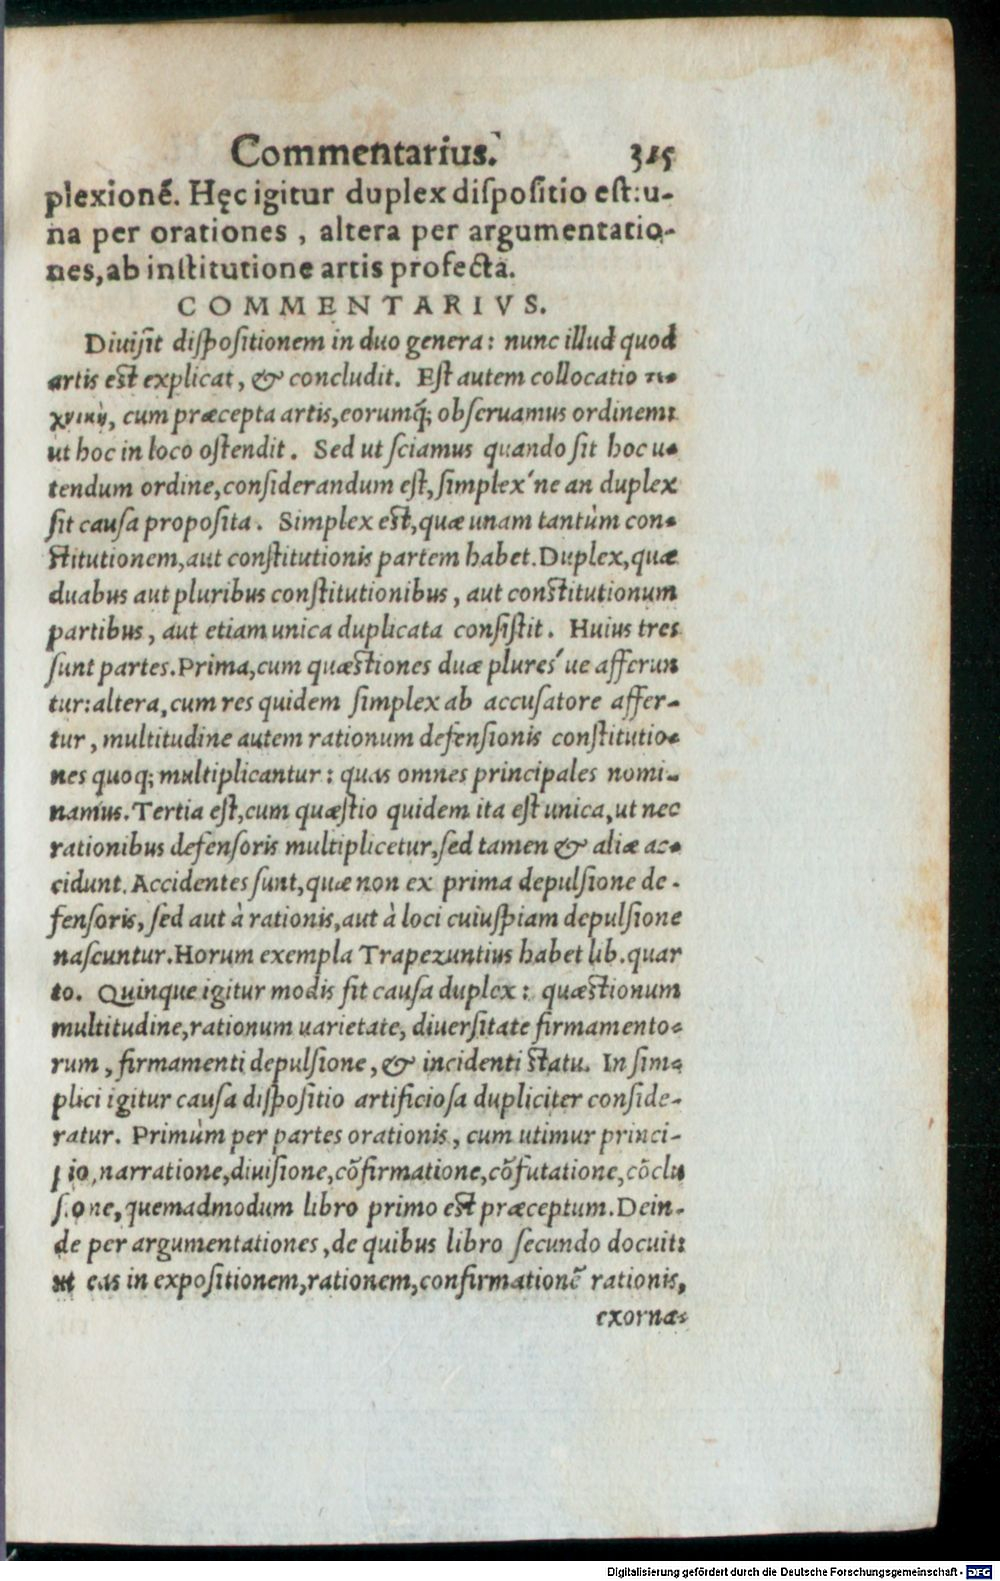 Commentarius. 315
plexionẽ. Hęc igitur duplex dispositio est: u-
na per orationes, altera per argumentatio-
nes, ab institutione artis profecta.
COMMENTARIVS.
Diuisit dispositionem in duo genera: nunc illud quod
artis est explicat, & concludit. Est autem collocatio τε-
χνικὴ, cum præcepta artis, eorumq́; obseruamus ordinem:
ut hoc in loco ostendit. Sed ut sciamus quando sit hoc u-
tendum ordine, considerandum est, simplex'ne an duplex
sit causa proposita. Simplex est, quæ unam tantùm con-
stitutionem, aut constitutionis partem habet. Duplex, quæ
duabus aut pluribus constitutionibus, aut constitutionum
partibus, aut etiam unica duplicata consistit. Huius tres
sunt partes. Prima, cum quæstiones duæ plures'ue afferun
tur: altera, cum res quidem simplex ab accusatore affer-
tur, multitudine autem rationum defensionis constitutio-
nes quoq; multiplicantur: quas omnes principales nomi-
namus. Tertia est, cum quæstio quidem ita est unica, ut nec
rationibus defensoris multiplicetur, sed tamen & aliæ ac-
cidunt. Accidentes sunt, quæ non ex prima depulsione de-
fensoris, sed aut à rationis, aut à loci cuiuspiam depulsione
nascuntur. Horum exempla Trapezuntius habet lib. quar
to. Quinque igitur modis fit causa duplex: quæstionum
multitudine, rationum uarietate, diuersitate firmamento-
rum, firmamenti depulsione, & incidenti statu. In sim-
plici igitur causa dispositio artificiosa dupliciter conside-
ratur. Primùm per partes orationis, cum utimur princi-
pio, narratione, diuisione, cõfirmatione, cõfutatione, cõclu
sione, quemadmodum libro primo est præceptum. Dein-
de per argumentationes, de quibus libro secundo docuit:
ut eas in expositionem, rationem, confirmationẽ rationis,
exorna-
Digitalisierung gefördert durch die Deutsche Forschungsgemeinschaft - DFG